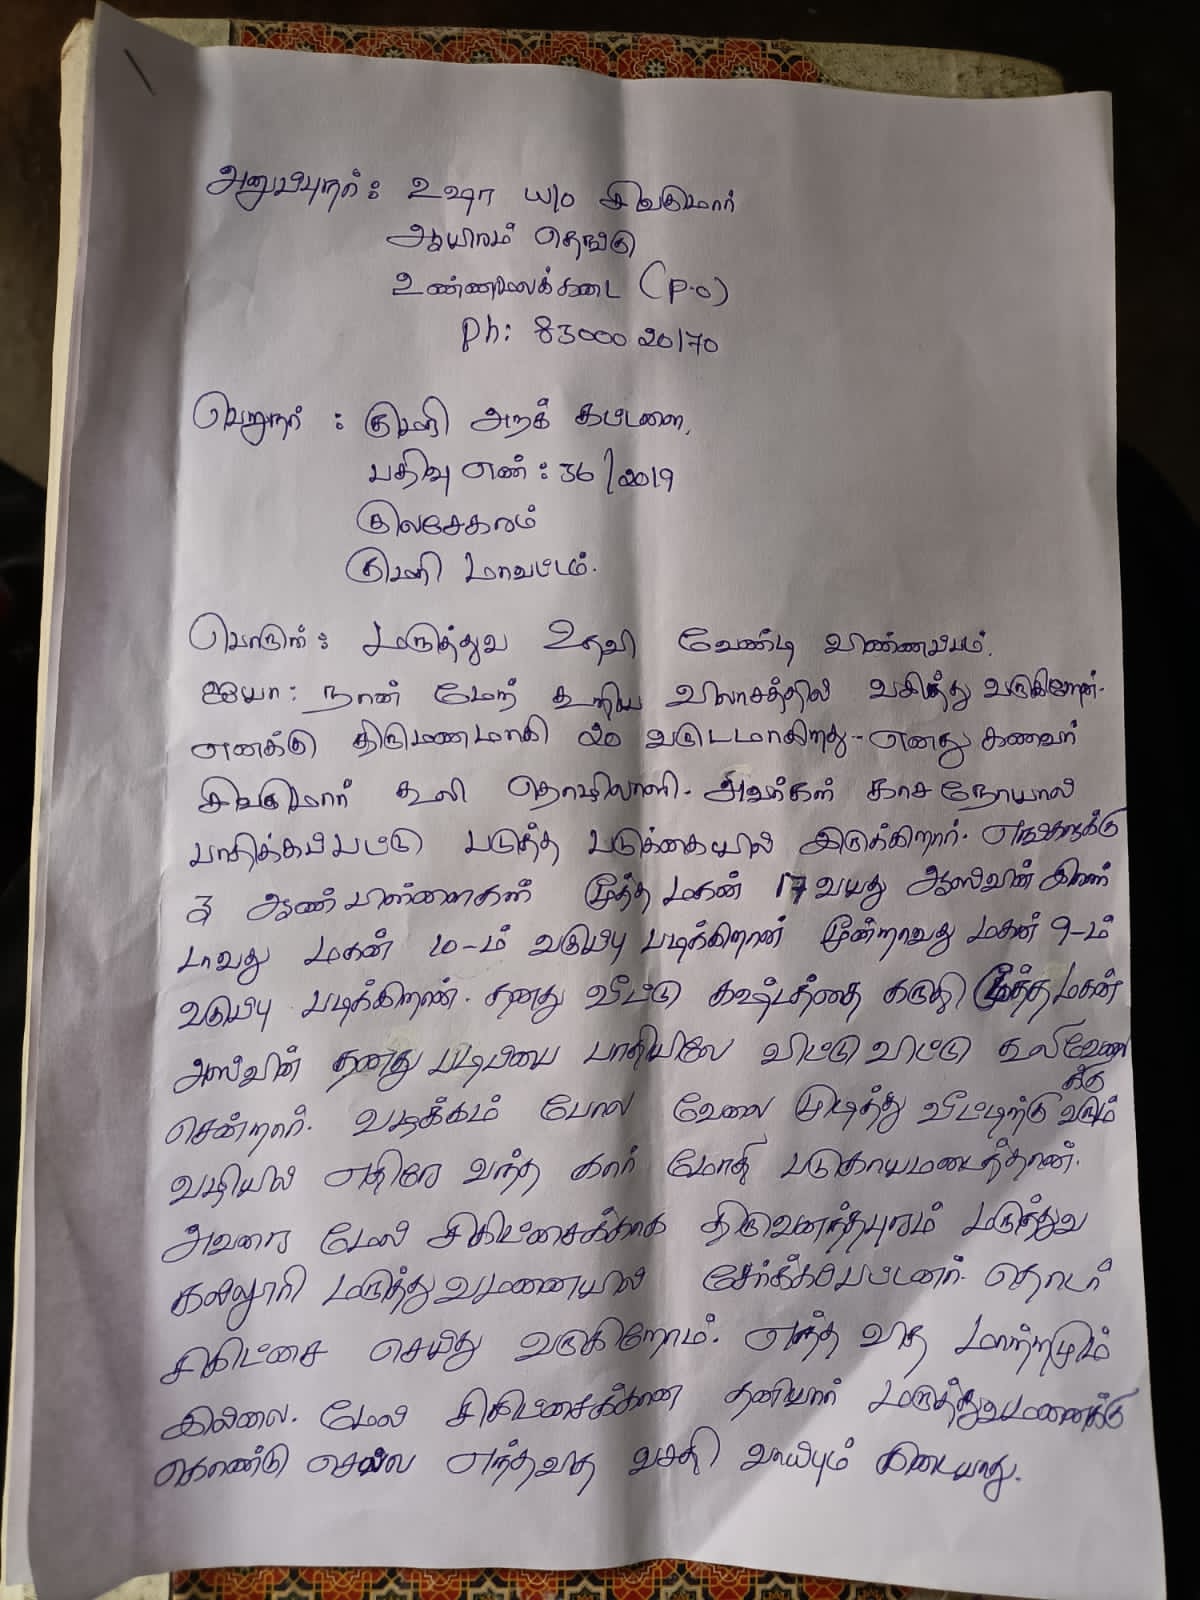 அனுப்புநர்: உஷா W/o சிவகுமார்
ஆயிரம் தெங்கு
உண்ணாமலைக்கடை (P.O)
Ph: 83000 20170
பெறுநர் : குமரி அறக் கட்டளை,
பதிவு எண்: 36/2019
குலசேகரம்
குமரி மாவட்டம்.
பொருள்: மருத்துவ உதவி வேண்டி விண்ணப்பம்.
ஐயா: நான் மேற் கூறிய விலாசத்தில் வசித்து வருகிறேன்.
எனக்கு திருமணமாகி 20 வருடமாகிறது- எனது கணவர்
சிவகுமார் கூலி தொழிலாளி. அவர்கள் காச நோயால்
பாதிக்கப்பட்டு படுத்த படுக்கையில் இருக்கிறார். எங்களுக்கு
3 ஆண் பிள்ளைகள் மூத்த மகன் 17 வயது ஆஸ்வின் இரண்
டாவது மகன் 10-ம் வகுப்பு படிக்கிறான் மூன்றாவது மகன் 9-ம்
வகுப்பு படிக்கிறான். தனது வீட்டு கஷ்டத்தை கருதி மூத்த மகன்
அஸ்வின் தனது படிப்பை பாதியிலே விட்டு விட்டு கூலிவேலை
க்கு
சென்றார். வழக்கம் போல வேலை முடித்து வீட்டிற்கு வரும்
வழியில் எதிரே வந்த கார் மோதி படுகாயமடைந்தான்.
அவரை மேல் சிகிட்சைக்காக திருவனந்தபுரம் மருத்துவ
கல்லூரி மருத்துவமனையில் சேர்க்கப்பட்டனர். தொடர்
சிகிட்சை செய்து வருகிறோம். எந்த வித மாற்றமும்
இல்லை. மேல் சிகிட்சைக்கான தனியார் மருத்துவமனைக்கு
கொண்டு செல்ல எந்தவித வசதி வாய்பும் கிடையாது.